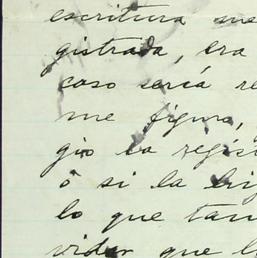 escritura me
gistrada, era
caso será re
me figura,
gio la regis
ó si la hi
lo que tam
vider que l